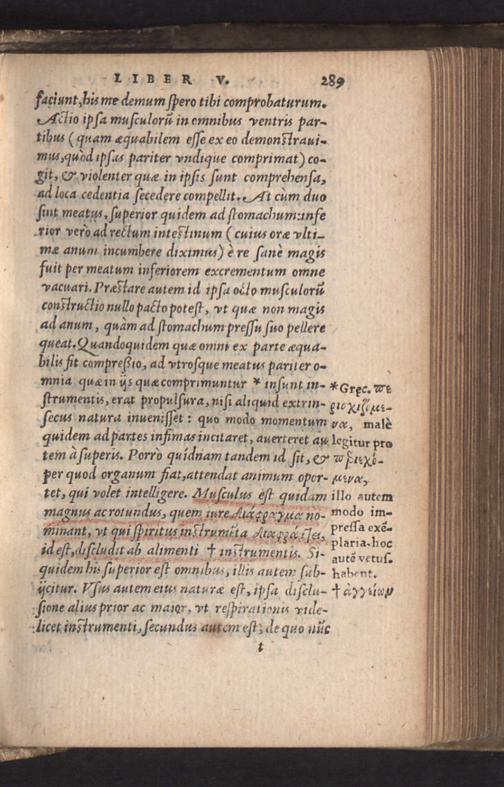 LIBER V. 289
faciunt, his me demum spero tibi comprobaturum.
Actio ipsa musculorũ in omnibus ventris par-
tibus (quam æquabilem esse ex eo demonstraui-
mus, quòd ipsas pariter vndique comprimat) co-
git, & violenter quæ in ipsis sunt comprehensa,
ad loca cedentia secedere compellit. At cùm duo
sint meatus, superior quidem ad stomachum: infe
rior verò ad rectum intestinum (cuius oræ vlti-
mæ anum incumbere diximus) è re sanè magis
fuit per meatum inferiorem excrementum omne
vacuari. Præstare autem id ipsa octo musculorũ
constructio nullo pacto potest, vt quæ non magis
ad anum, quàm ad stomachum pressu suo pellere
queat. Quandoquidem quæ omni ex parte æqua-
bilis fit compressio, ad vtrosque meatus pariter o-
mnia quæ in ijs quæ comprimuntur * insunt in-
strumentis, erat propulsura, nisi aliquid extrin-
secus natura inuenisset: quo modo momentum
quidem ad partes infimas incitaret, auerteret au
tem à superis. Porrò quidnam tandem id sit, &
per quod organum fiat, attendat animum opor-
tet, qui volet intelligere. Musculus est quidam
magnus ac rotundus, quem iure διάφραγμα no-
minant, vt qui spiritus instrumẽta διαφράττει,
id est, discludit ab alimenti † instrumentis. Si-
quidem his superior est omnibus, illis autem sub-
ijcitur. Vsus autem eius naturæ est, ipsa disclu-
sione alius prior ac maior, vt respirationis vide-
licet instrumenti, secundus autem est, de quo nũc
t
* Græc. πε
ριοχιζομε-
να, malè
legitur pro
περιεχό-
μενα,
illo autem
modo im-
pressa exẽ-
plaria. hoc
autẽ vetus.
habent.
† ἀγγείων